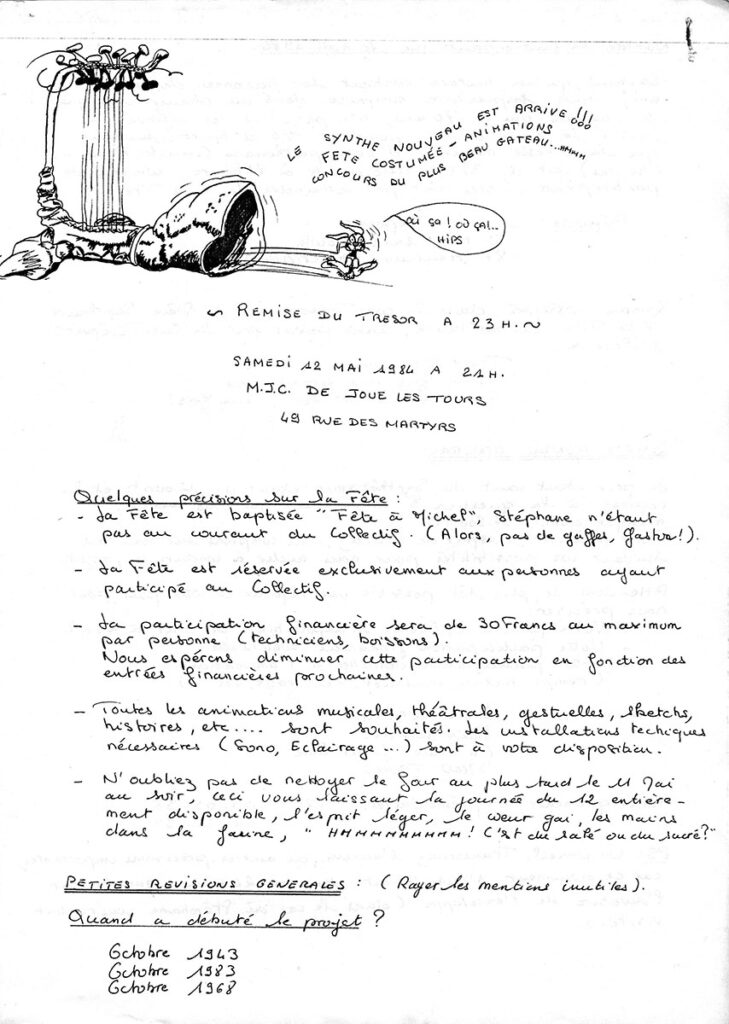 LE SYNTHE NOUVEAU EST ARRIVE !!!
FETE COSTUMÉE - ANIMATIONS
CONCOURS DU PLUS BEAU GATEAU...
où ça ! où ça !..
HIPS
~ REMISE DU TRESOR A 23 H. ~
SAMEDI 12 MAI 1984 A 21H.
M.J.C. DE JOUE LES TOURS
49 RUE DES MARTYRS
Quelques précisions sur la Fête :
- La Fête est baptisée "Fête à Michel", Stéphane n'étant
pas au courant du Collectif. (Alors, pas de gaffes, Gaston !).
- La Fête est réservée exclusivement aux personnes ayant
participé au Collectif.
- La participation financière sera de 30 Francs au maximum
par personne (techniciens, boissons).
Nous espérons diminuer cette participation en fonction des
entrées financières prochaines.
- Toutes les animations musicales, théâtrales, gestuelles, sketchs,
histoires, etc.... sont souhaités. Les installations techiques
nécessaires (Sono, Eclairage ...) sont à votre disposition.
- N'oubliez pas de nettoyer le four au plus tard le 11 Mai
au soir, ceci vous laissant la journée du 12 entière-
ment disponible, l'esprit léger, le cœur gai, les mains
dans la farine, " HMMMMMMMMM ! C'est du salé ou du sucré ?"
PETITES REVISIONS GENERALES : (Rayer les mentions inutiles).
Quand a débuté le projet ?
Octobre 1943
Octobre 1983
Octobre 1968